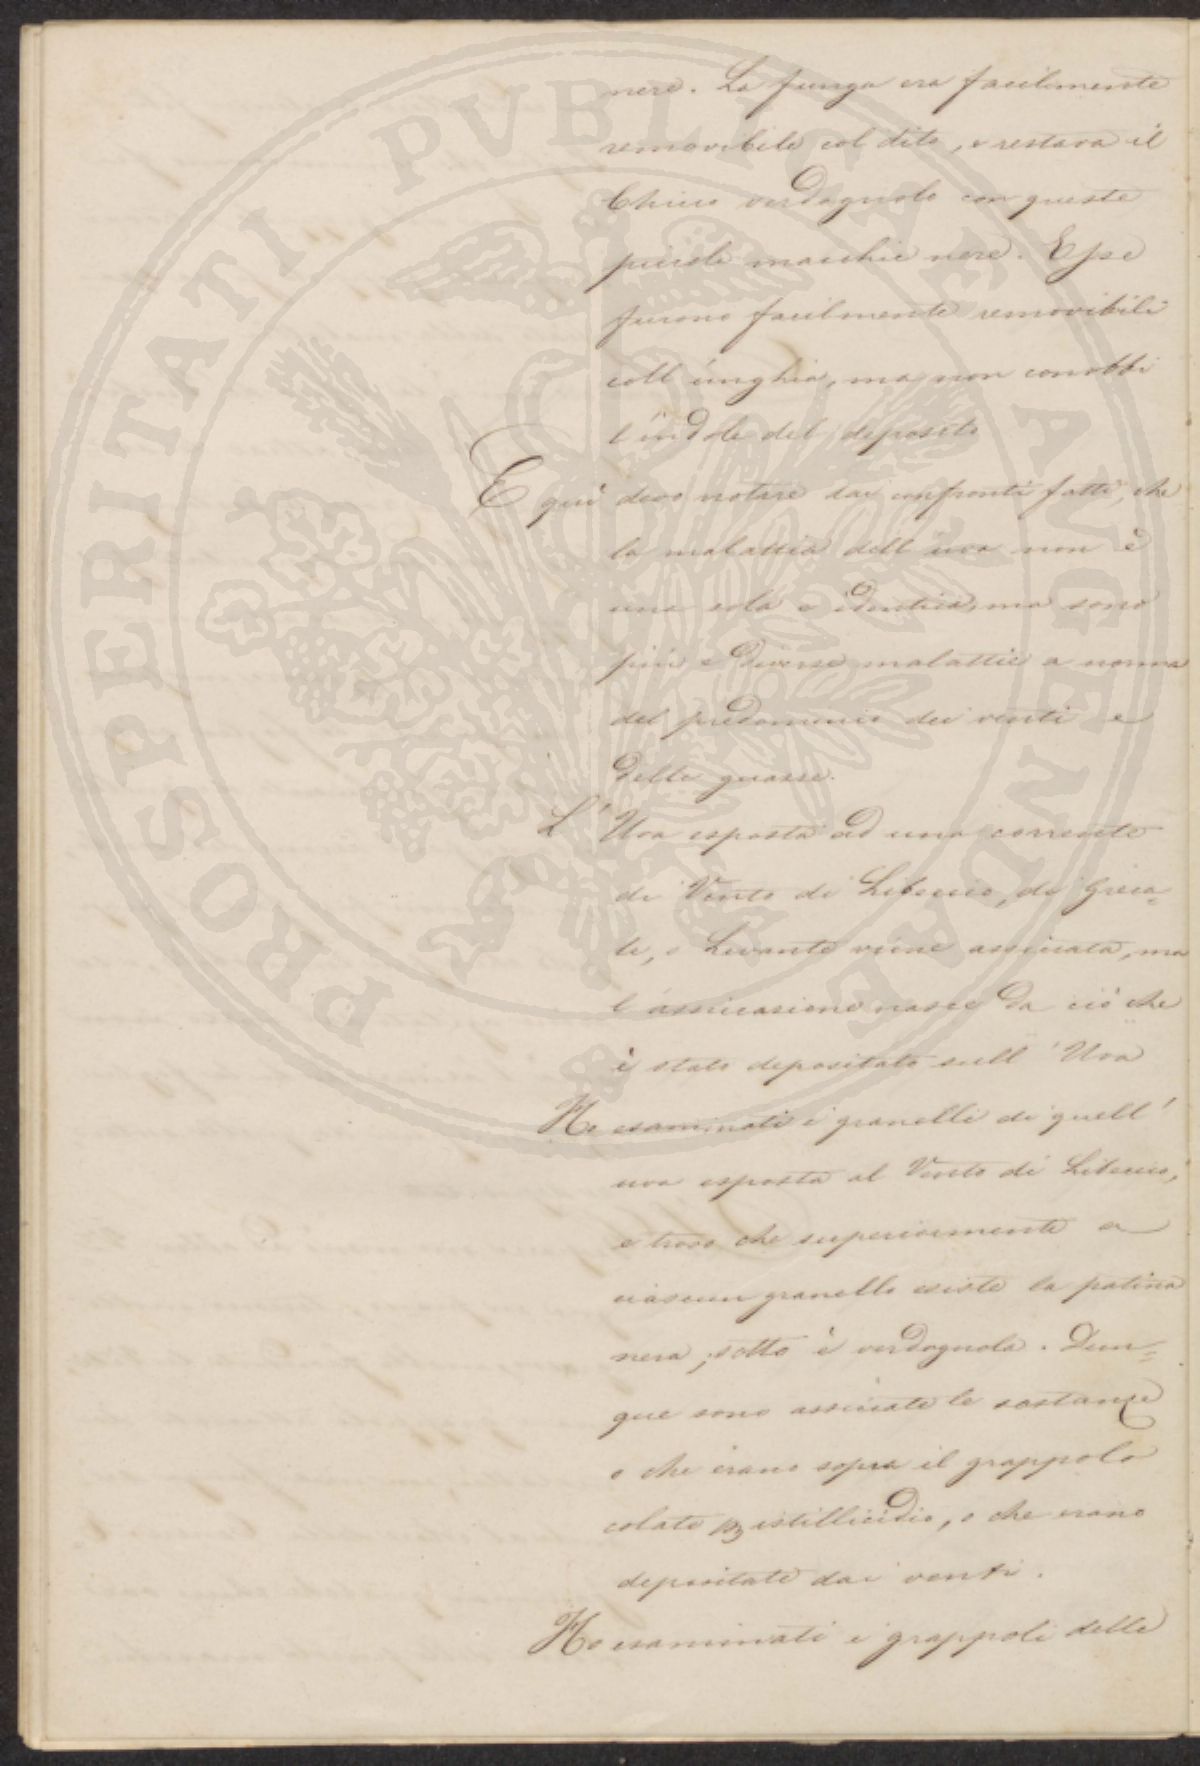 nere. La funga era facilmente
removibile col dito, e restava il
Chicco verdognolo con queste
piccole macchie nere. Esse
furono facilmente removibili
coll'unghia, ma non conobbi
l'indole del deposito
E qui devo notare dai confronti fatti, che
la malattia dell'uva non è
una sola e identica, ma sono
più e diverse malattie a norma
del predominio dei venti e
delle guazze.
L'Uva esposta ad una corrente
di Vento di Libeccio, di Greca=
le, o Levante viene arsicciata, ma
l'arsicciazione nasce da ciò che
è stato depositato sull'Uva
Ho esaminati i granelli di quell'
uva esposta al Vento di Libeccio,
e trovo che superiormente a
ciascun granello esiste la patina
nera, sotto è verdognola. Dun=
que sono arsicciate le sostanze
o che erano sopra il grappolo
colate per istillicidio, o che erano
depositate dai venti.
Ho esaminati i grappoli delle
PROSPERITATI PVBLICAE AVGENDAE